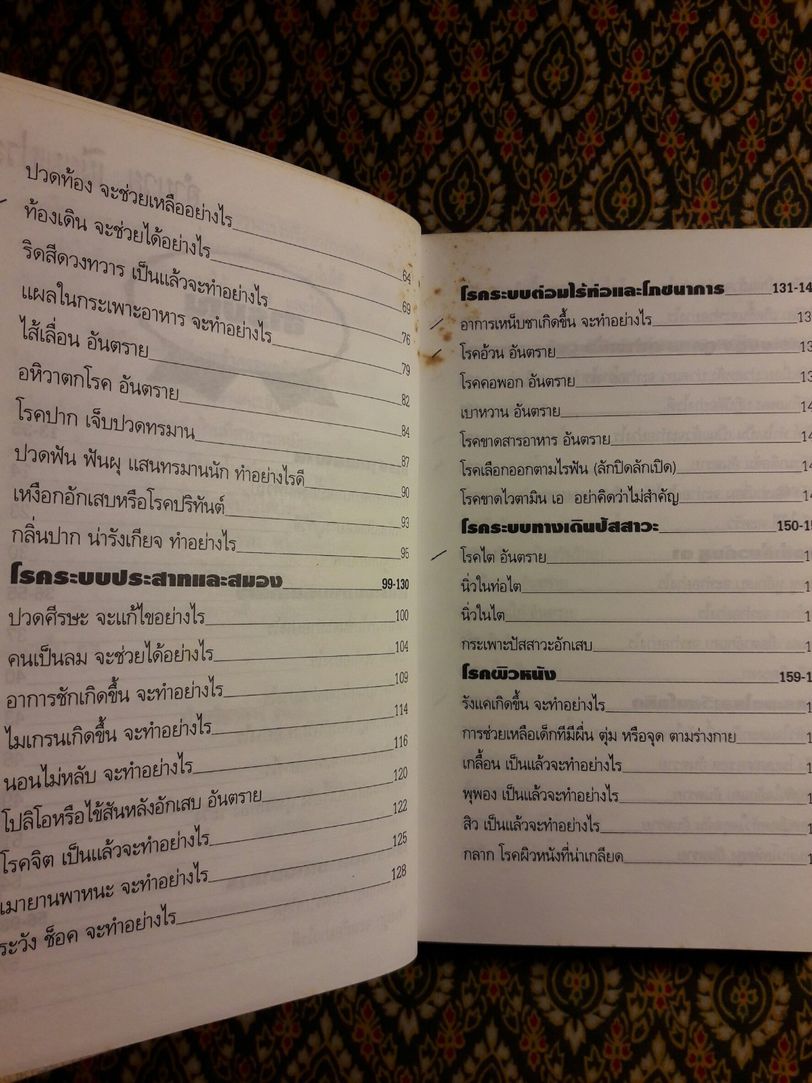 ปวดท้อง จะช่วยเหลืออย่างไร 64
ท้องเดิน จะช่วยได้อย่างไร 69
ริดสีดวงทวาร เป็นแล้วจะทำอย่างไร 76
แผลในกระเพาะอาหาร จะทำอย่างไร 79
ไส้เลื่อน อันตราย 82
อหิวาตกโรค อันตราย 84
โรคปาก เจ็บปวดทรมาน 87
ปวดฟัน ฟันผุ แสนทรมานนัก ทำอย่างไรดี 90
เหงือกอักเสบหรือโรคปริทันต์ 93
กลิ่นปาก น่ารังเกียจ ทำอย่างไร 95
โรคระบบประสาทและสมอง 99-130
ปวดศีรษะ จะแก้ไขอย่างไร 100
คนเป็นลม จะช่วยได้อย่างไร 104
อาการชักเกิดขึ้น จะทำอย่างไร 109
ไมเกรนเกิดขึ้น จะทำอย่างไร 114
นอนไม่หลับ จะทำอย่างไร 116
โปลิโอหรือไข้สันหลังอักเสบ อันตราย 120
โรคจิต เป็นแล้วจะทำอย่างไร 122
เมายานพาหนะ จะทำอย่างไร 125
ระวัง ช็อค จะทำอย่างไร 128
โรคระบบต่อมไร้ท่อและโภชนาการ 131-14
อาการเหน็บชาเกิดขึ้น จะทำอย่างไร 13
โรคอ้วน อันตราย 13
โรคคอพอก อันตราย 13
เบาหวาน อันตราย 14
โรคขาดสารอาหาร อันตราย 14
โรคเลือกออกตามไรฟัน (ลักปิดลักเปิด) 14
โรคขาดไวตามิน เอ อย่าคิดว่าไม่สำคัญ 14
โรคระบบทางเดินปัสสาวะ 150-15
โรคไต อันตราย 1
นิ่วในท่อไต 1
นิ่วในไต 1
กระเพาะปัสสาวะอักเสบ 1
โรคผิวหนัง 159-1
รังแคเกิดขึ้น จะทำอย่างไร 1
การช่วยเหลือเด็กที่มีผื่น ตุ่ม หรือจุด ตามร่างกาย 1
เกลื้อน เป็นแล้วจะทำอย่างไร 1
พุพอง เป็นแล้วจะทำอย่างไร 1
สิว เป็นแล้วจะทำอย่างไร 1
กลาก โรคผิวหนังที่น่าเกลียด 1